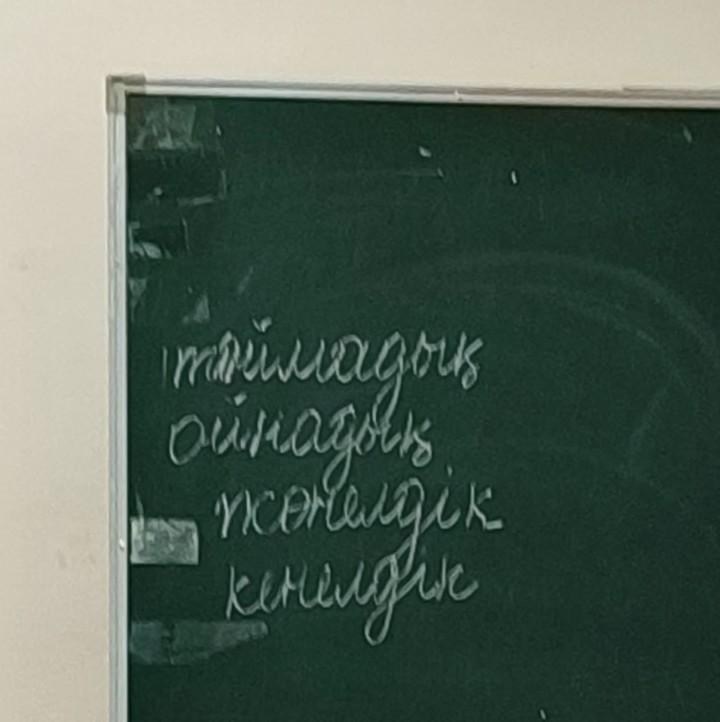 тоймадық
ойнадық
жөнелдік
кенелдік